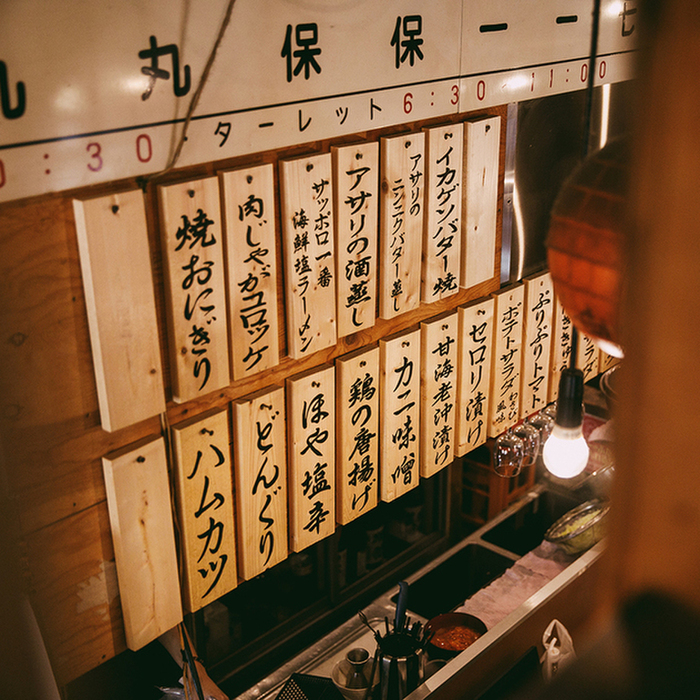 丸 保 保 一 一 七
:30 ターレット 6:30-11:00
焼おにぎり
肉じゃがコロッケ
サッポロ一番
海鮮塩ラーメン
アサリの酒蒸し
アサリの
ニンニクバター蒸し
イカゲンバター焼
ハムカツ
どんぐり
ほや塩辛
鶏の唐揚げ
カニ味噌
甘海老沖漬け
セロリ漬け
ポテトサラダ
わさび
風味
ぷりぷりトマト